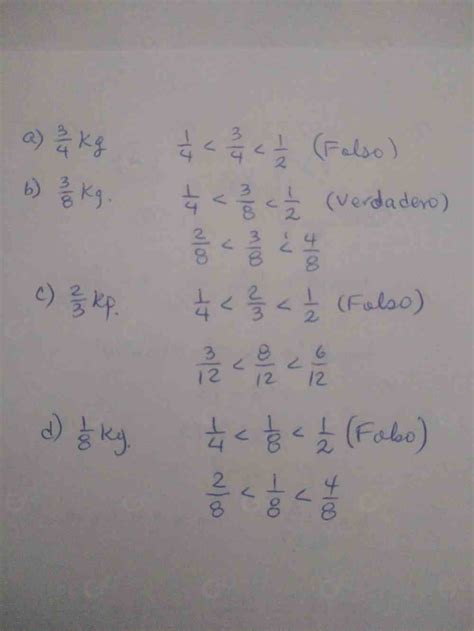 a) 3/4 Kg 1/4 < 3/4 < 1/2 (Falso)
b) 3/8 Kg. 1/4 < 3/8 < 1/2 (Verdadero)
2/8 < 3/8 < 4/8
c) 2/3 kp. 1/4 < 2/3 < 1/2 (Falso)
3/12 < 8/12 < 6/12
d) 1/8 Kg. 1/4 < 1/8 < 1/2 (Falso)
2/8 < 1/8 < 4/8